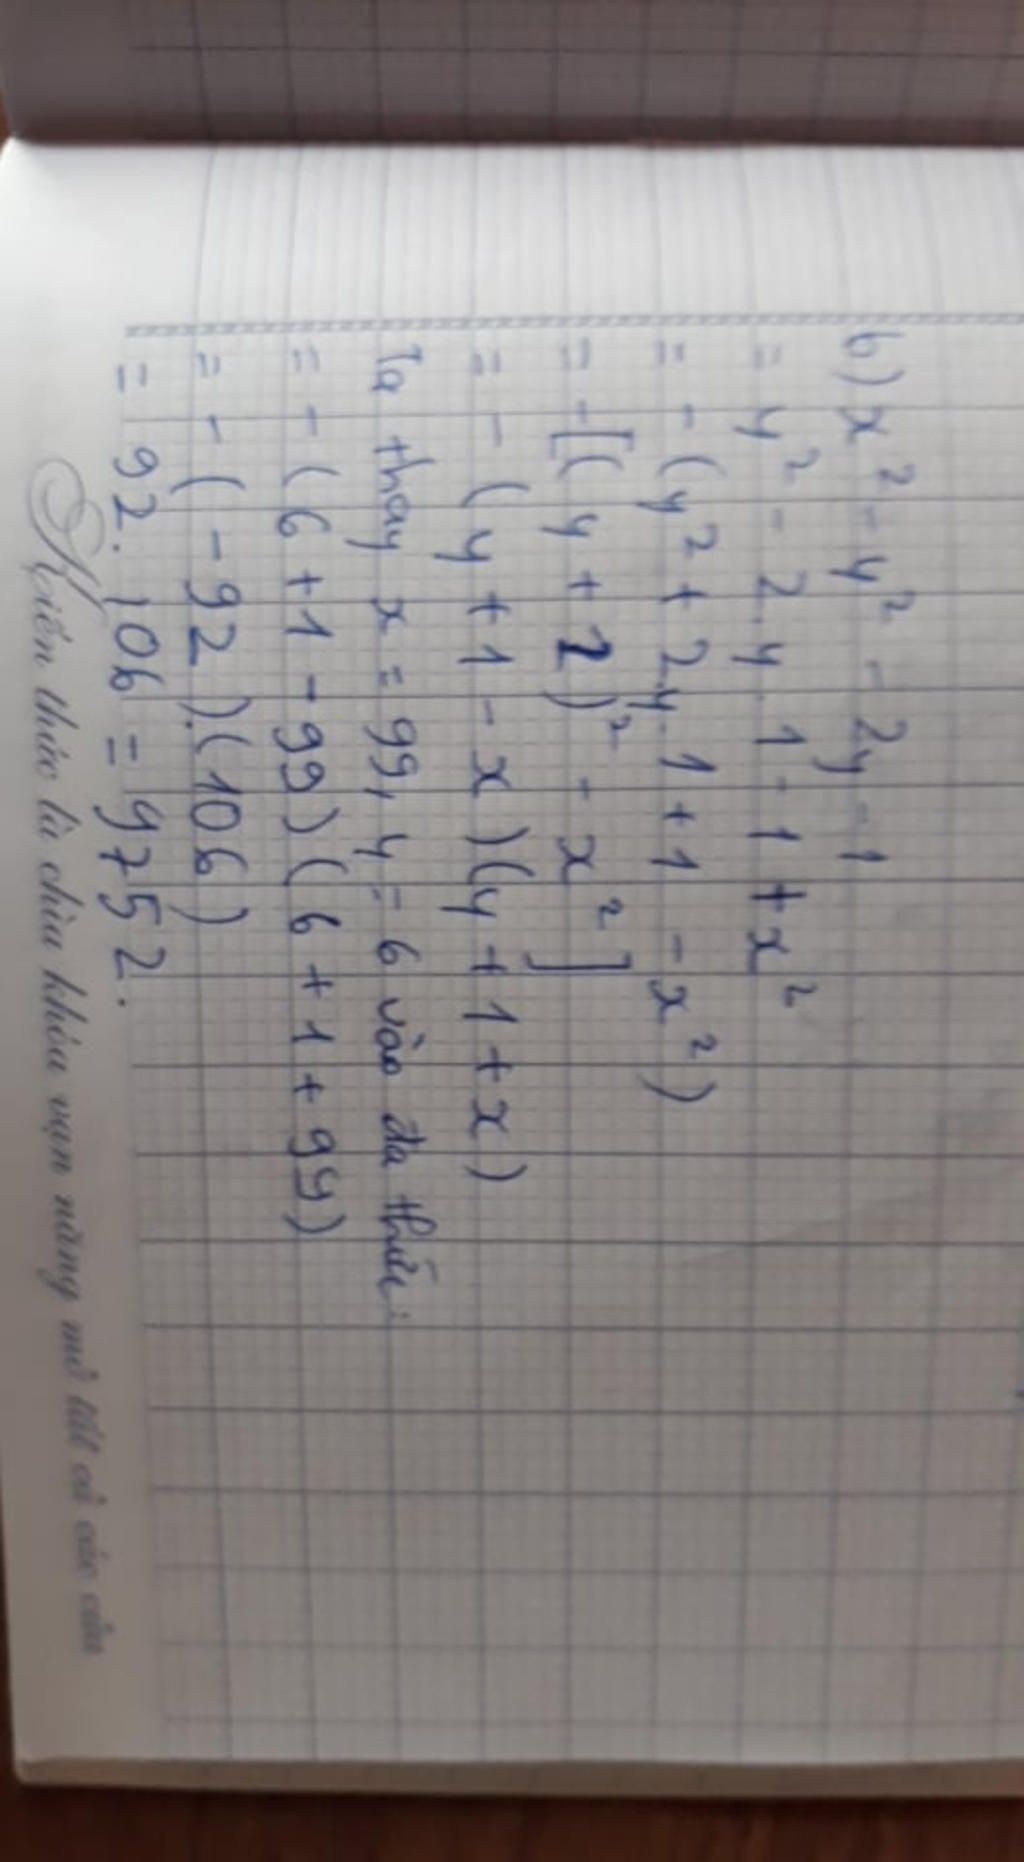 b) x² - y² - 2y - 1
= y² - 2.y.1 - 1 + x²
= - (y² + 2.y.1 + 1 - x²)
= -[(y + 1)² - x²]
= - (y + 1 - x)(y + 1 + x)
Ta thay x = 99, y = 6 vào đa thức:
= - (6 + 1 - 99)(6 + 1 + 99)
= - (-92).(106)
= 92.106 = 9752.
Kiến thức là chìa khóa vạn năng mở tất cả các cửa